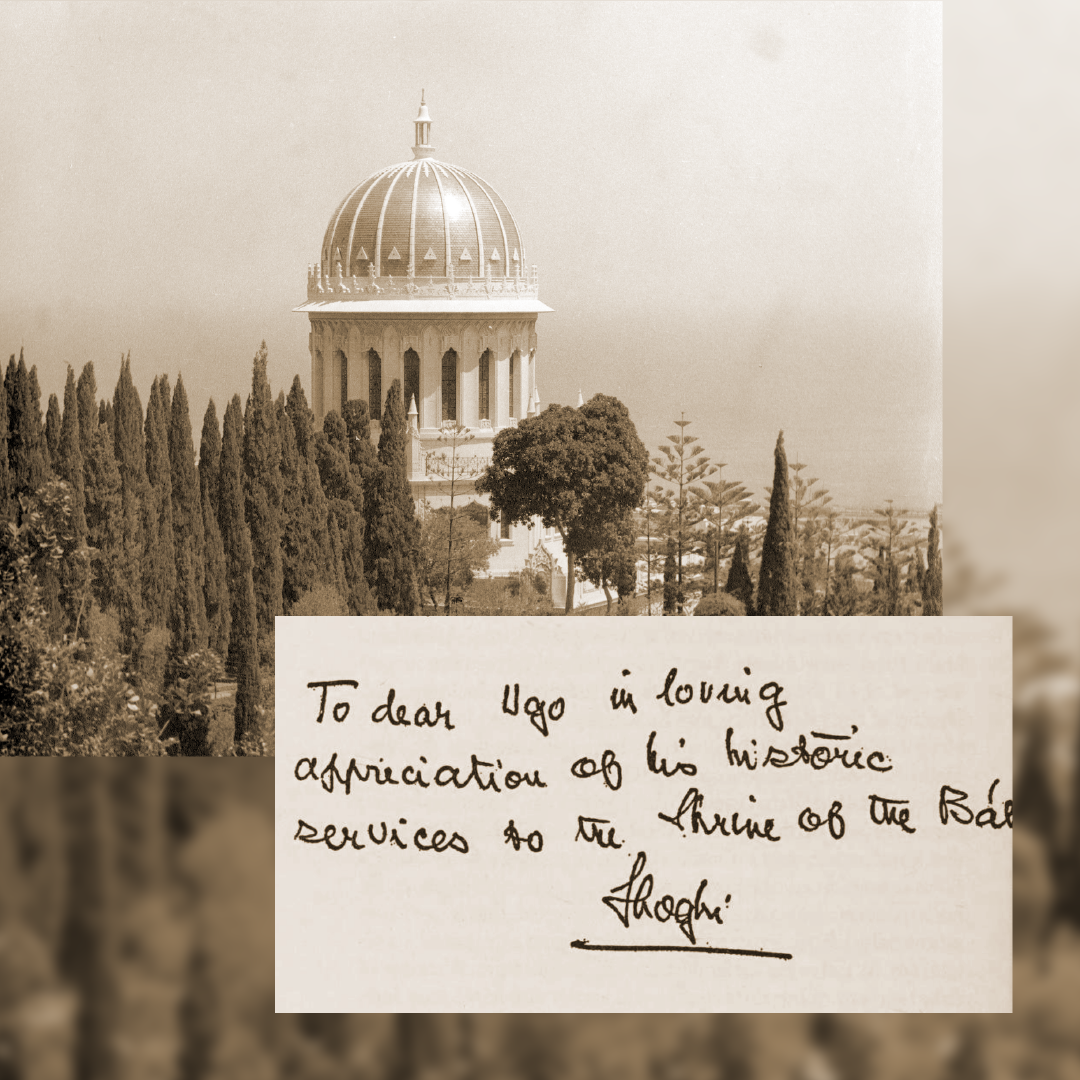 To dear Ugo in loving
appreciation of his historic
services to the Shrine of the Báb
Shoghi